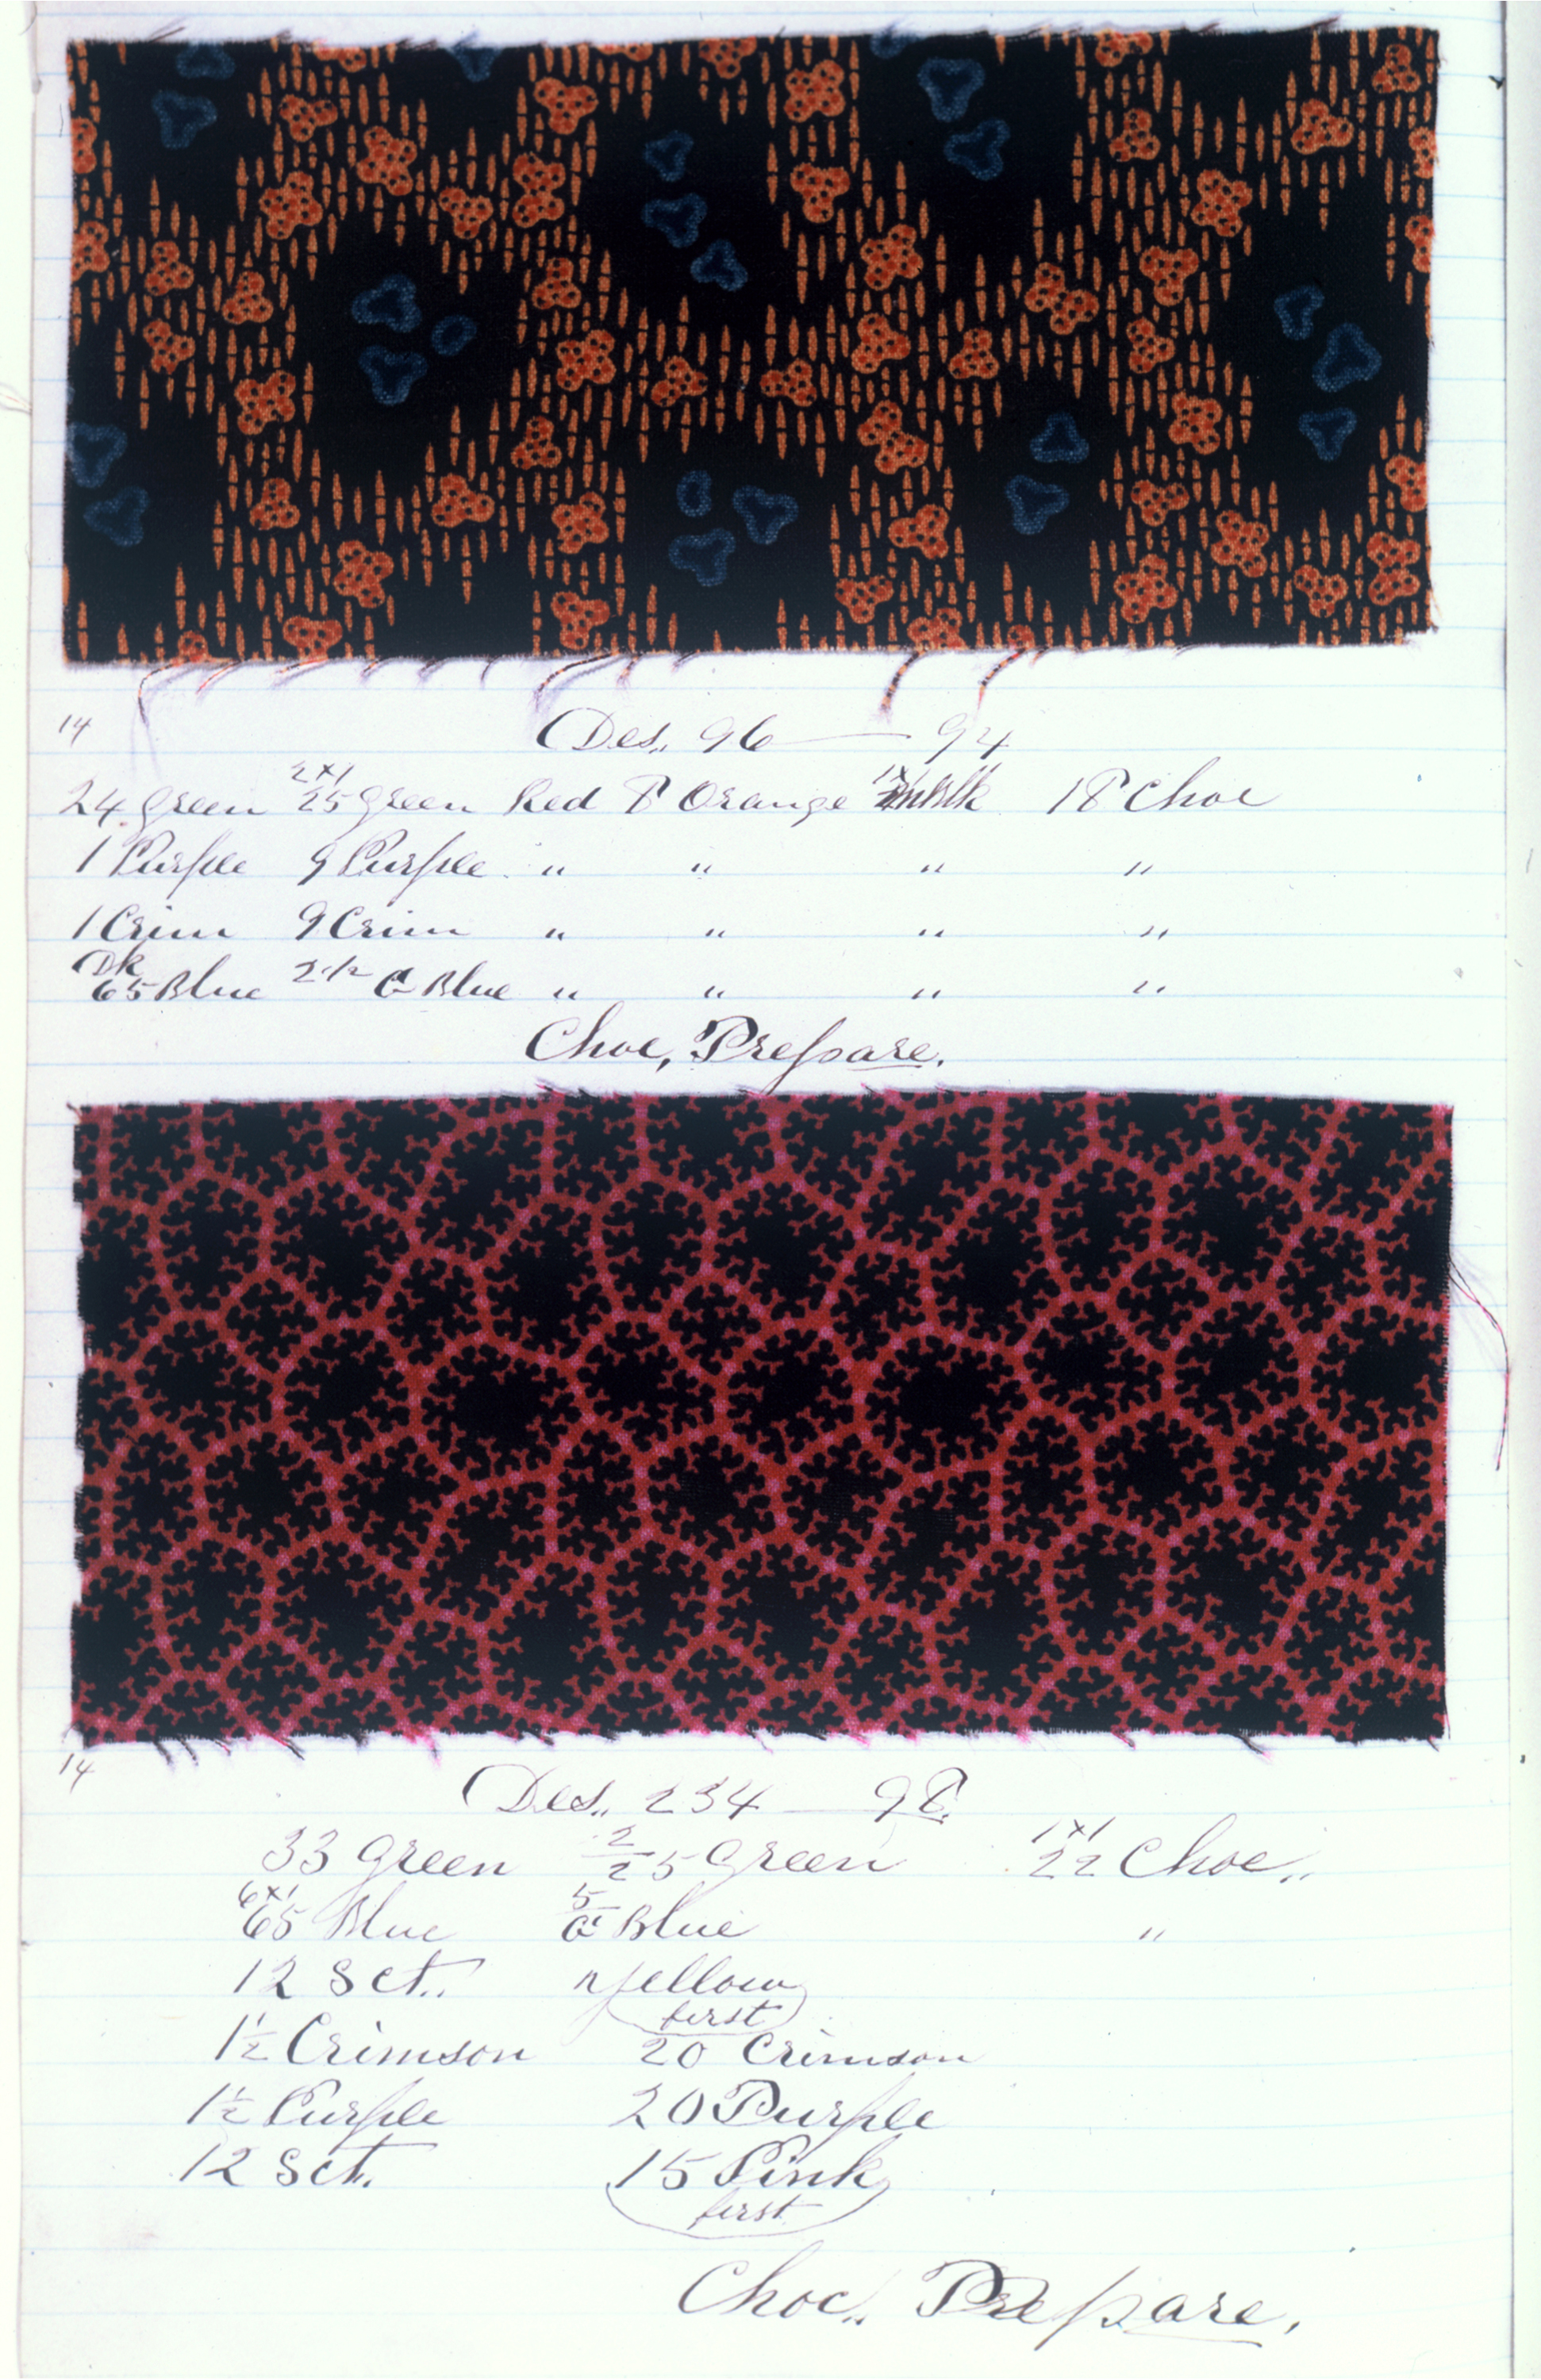 14
Des. 96 — 94
2x1
24 Green 25 Green Red 8 Orange Blk 18 Choc
1 Purple 9 Purple " " " "
1 Crim 9 Crim " " " "
Dk
65 Blue 2 1/2 G Blue " " " "
Choc, Prepare.
14
Des. 234 — 98
33 Green 2/25 Green 1x1 22 Choc.
6x1 65 Blue 5/G Blue "
12 Sct. yellow
first
1 1/2 Crimson 20 Crimson
1 1/2 Purple 20 Purple
12 Sct. 15 Pink
first
Choc. Prepare.